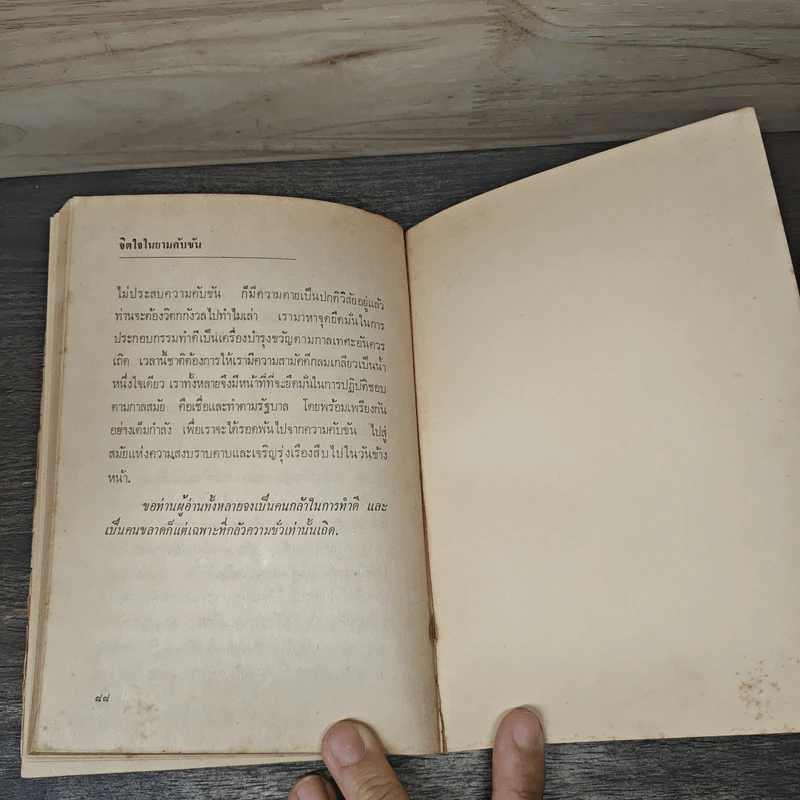 จิตใจในยามคับขัน
ไม่ประสบความคับขัน ก็มีความตายเป็นปกติวิสัยอยู่แล้ว
ท่านจะต้องวิตกกังวลไปทำไมเล่า เรามาหาจุดยึดมั่นในการ
ประกอบกรรมทำดีเป็นเครื่องบำรุงขวัญตามกาลเทศะอันควร
เถิด เวลานี้ชาติต้องการให้เรามีความสามัคคีกลมเกลียวเป็นน้ำ
หนึ่งใจเดียว เราทั้งหลายจึงมีหน้าที่ที่จะยึดมั่นในการปฏิบัติชอบ
ตามกาลสมัย คือเชื่อและทำตามรัฐบาล โดยพร้อมเพรียงกัน
อย่างเต็มกำลัง เพื่อเราจะได้รอดพ้นไปจากความคับขัน ไปสู่
สมัยแห่งความสงบราบคาบและเจริญรุ่งเรืองสืบไปในวันข้าง
หน้า.
ขอท่านผู้อ่านทั้งหลายจงเป็นคนกล้าในการทำดี และ
เป็นคนขลาดก็แต่เฉพาะที่กลัวความชั่วเท่านั้นเถิด.
๘๘